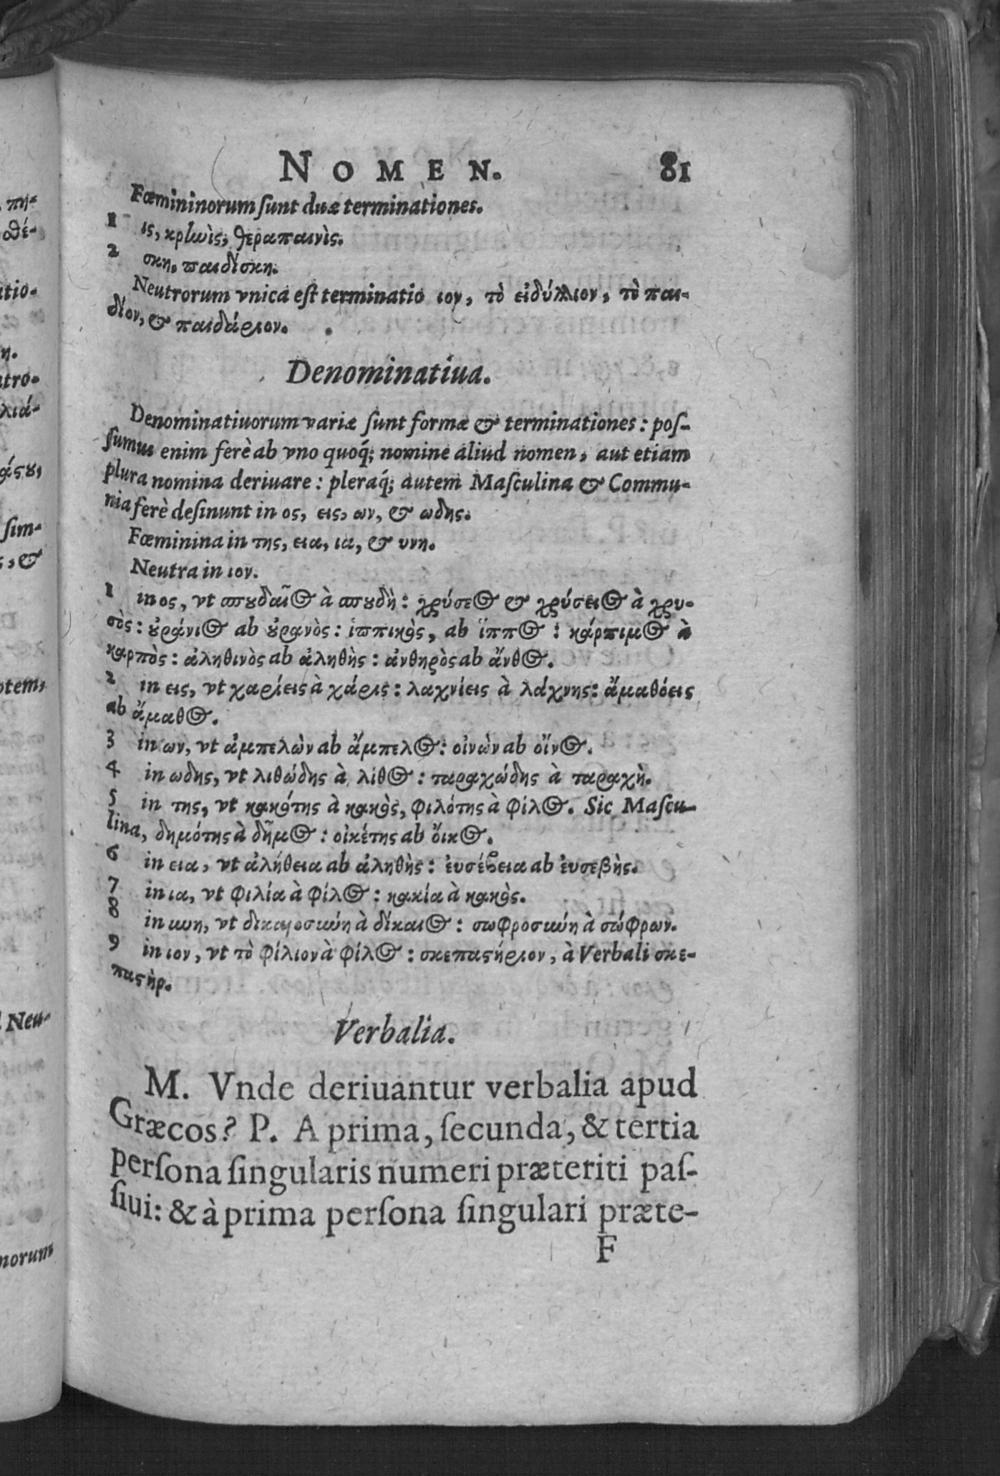 NOMEN. 81
Fœmininorum ſunt duæ terminationes.
1 ις, κρηνὶς, θεραπαινὶς.
2 σκη, παιδίσκη.
Neutrorum vnica eſt terminatio ιον, τὸ εἰδύλλιον, τὸ παι-
δίον, & παιδάριον.
Denominatiua.
Denominatiuorum variæ ſunt formæ & terminationes: poſ-
ſumus enim ferè ab vno quoq; nomine aliud nomen, aut etiam
plura nomina deriuare: pleraq; autem Maſculina & Commu-
nia ferè deſinunt in ος, εις, ων, & ωδης.
Fœminina in της, εια, ια, & υνη.
Neutra in ιον.
1 in ος, vt σπουδαῖος à σπουδὴ: χρύσεος & χρύσειος à χρυ-
σὸς: οὐράνιος ab οὐρανὸς: ἱππικὸς, ab ἵππος: κάρπιμος à
καρπὸς: ἀληθινὸς ab ἀληθὴς: ἀνθηρὸς ab ἄνθος.
2 in εις, vt χαρίεις à χάρις: λαχνίεις à λάχνης: ἄμαθόεις
ab ἄμαθος.
3 in ων, vt ἀμπελὼν ab ἄμπελος: οἰνὼν ab οἴνος.
4 in ωδης, vt λιθώδης à λίθος: ταραχώδης à ταραχὴ.
5 in της, vt κακότης à κακὸς, φιλότης à φίλος. Sic Maſcu-
lina, δημότης à δῆμος: οἰκέτης ab ὄικος.
6 in εια, vt ἀλήθεια ab ἀληθὴς: ἐυσέβεια ab ἐυσεβὴς.
7 in ια, vt φιλία à φίλος: κακία à κακὸς.
8 in υνη, vt δικαιοσύνη à δίκαιος: σωφροσύνη à σώφρων.
9 in ιον, vt τὸ φίλιον à φίλος: σκεπαστήριον, à Verbali σκε-
παστὴρ.
Verbalia.
M. Vnde deriuantur verbalia apud
Græcos? P. A prima, ſecunda, & tertia
perſona ſingularis numeri præteriti paſ-
ſiui: & à prima perſona ſingulari præte-
F